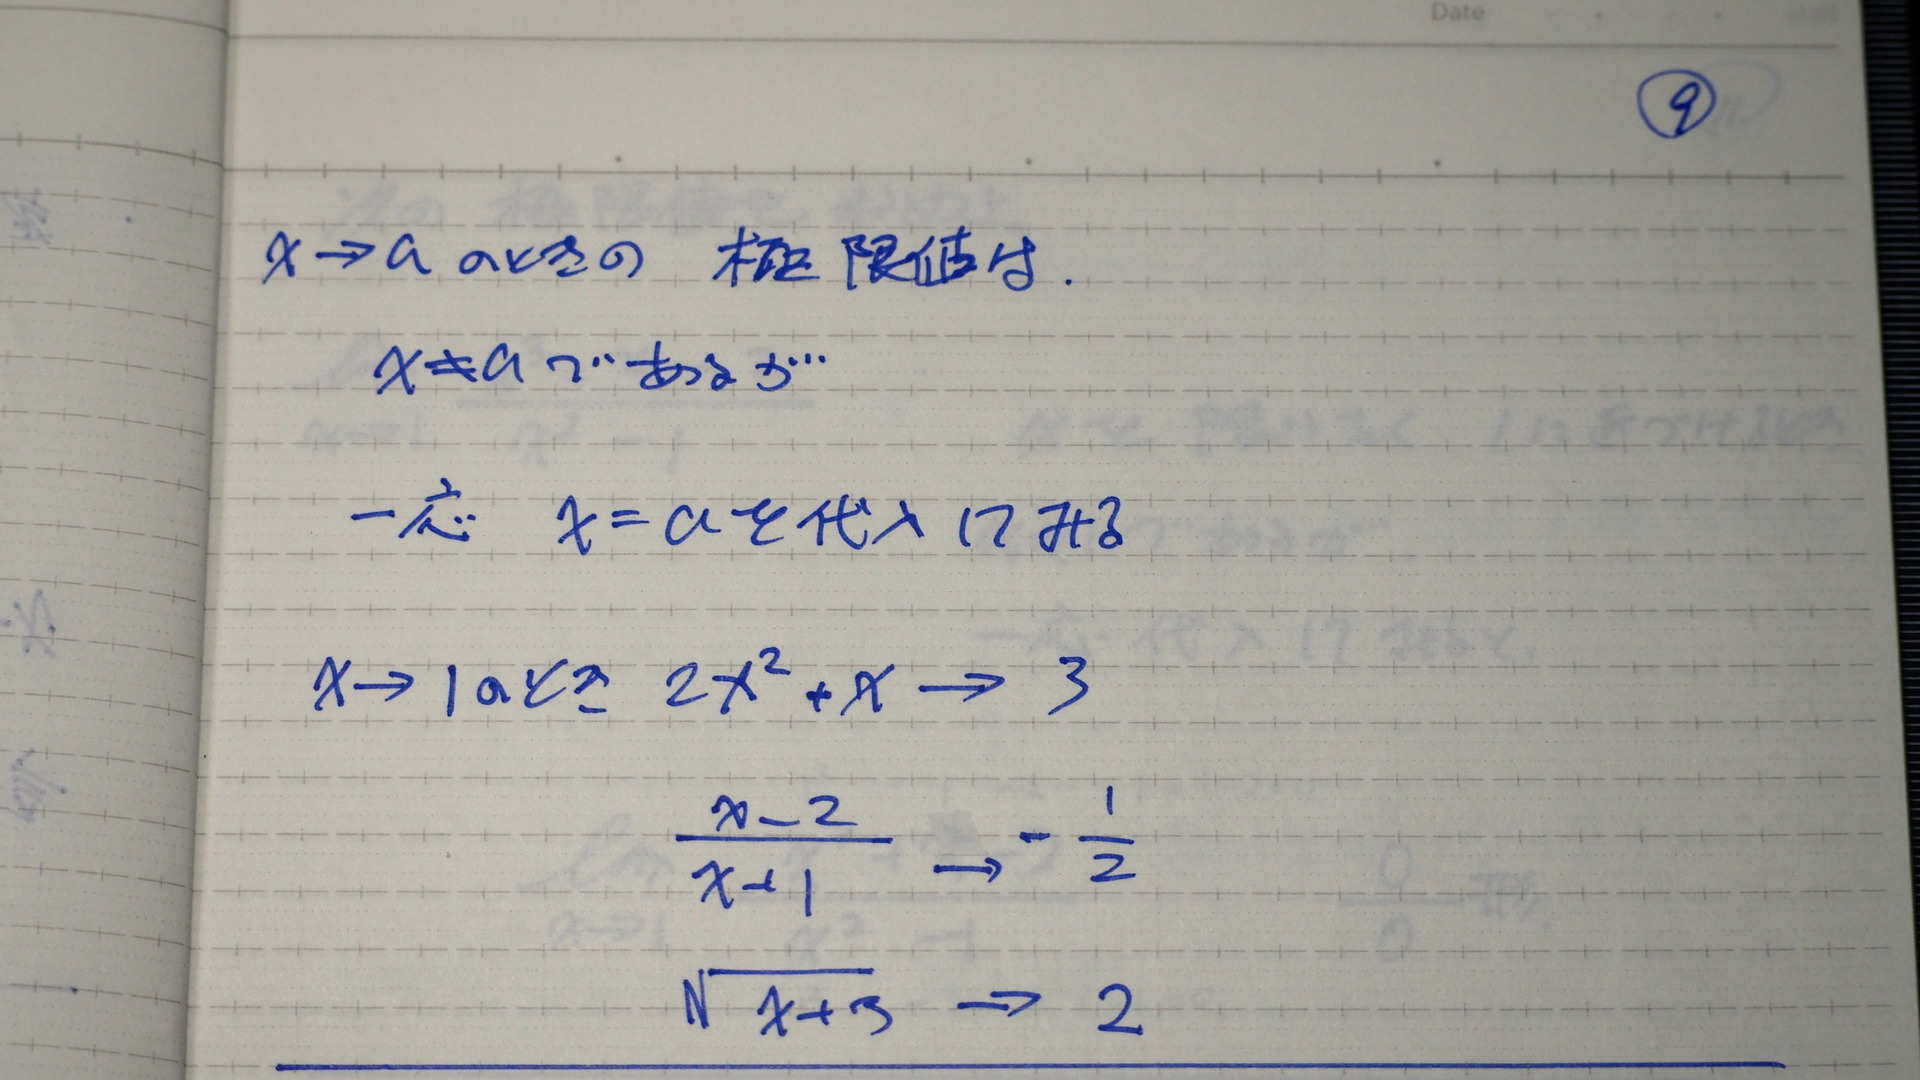 Date
9
x→aのときの 極限値は.
x≠aであるが…
一応 x=aを代入してみる
x→1のとき 2x²+x → 3
(x-2)/(x+1) → -1/2
√(x+3) → 2